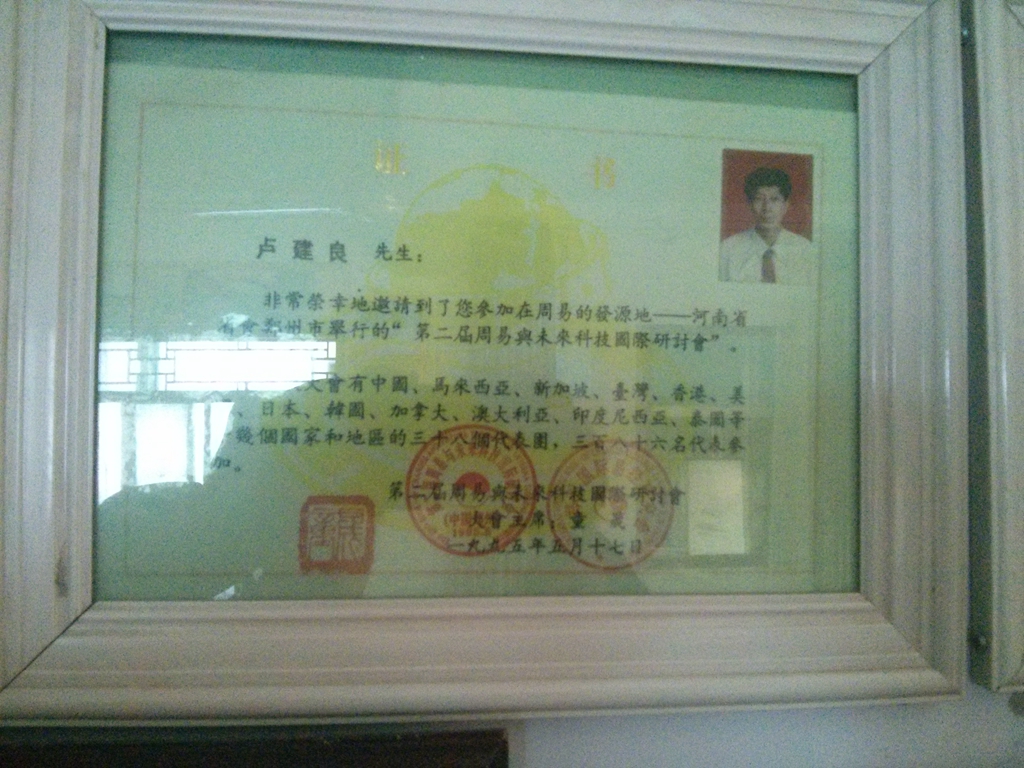 證 書
卢 建 良 先生：
非常榮幸地邀請到了您參加在周易的發源地——河南省
省會鄭州市舉行的“第二屆周易與未來科技國際研討會”。
大會有中國、馬來西亞、新加坡、臺灣、香港、美
、日本、韓國、加拿大、澳大利亞、印度尼西亞、泰國等
幾個國家和地區的三十八個代表團，三百八十六名代表參
加。
第二屆周易與未來科技國際研討會
大會主席：童
一九九五年五月十七日